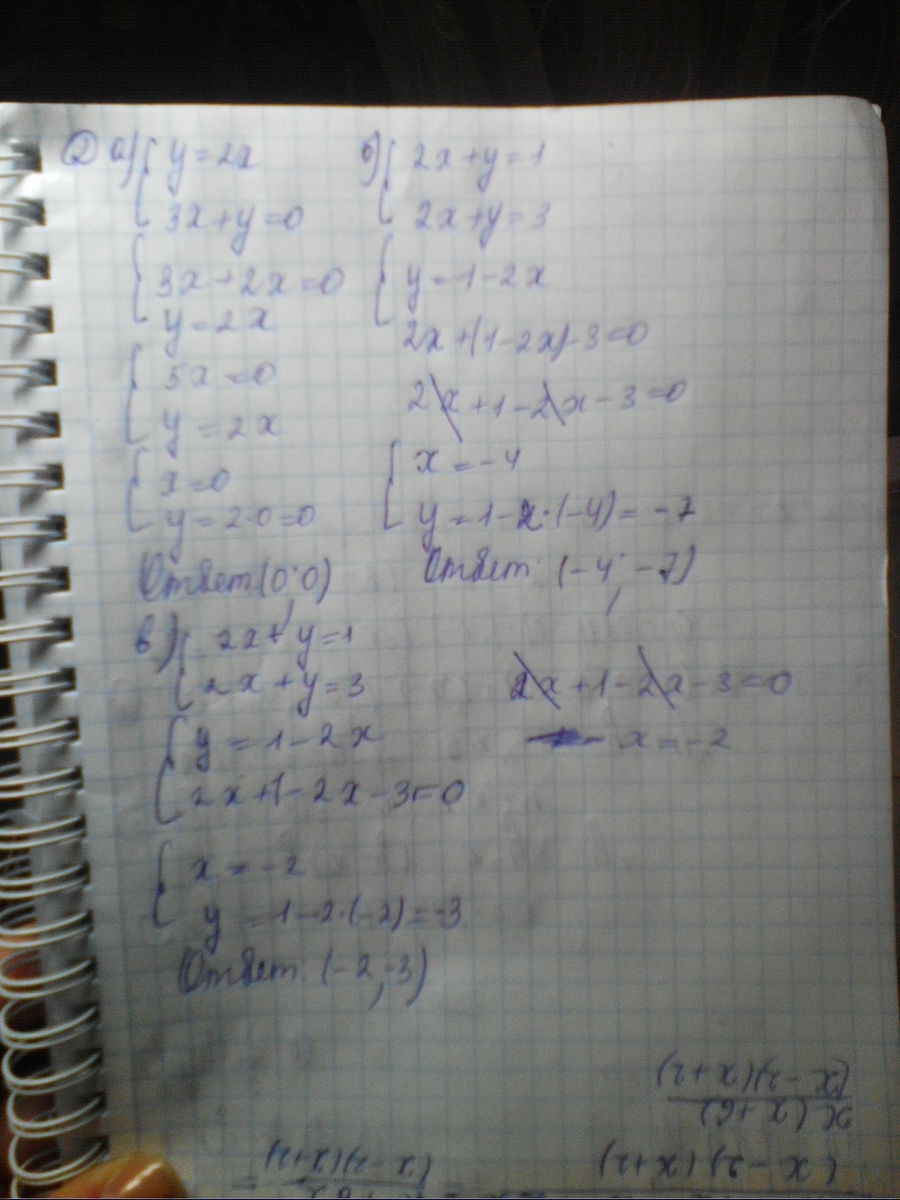 2 а) { y = 2x
3x + y = 0
{ 3x + 2x = 0
y = 2x
{ 5x = 0
y = 2x
{ x = 0
y = 2·0 = 0
Ответ (0; 0)
б) { 2x + y = 1
2x + y = 3
{ y = 1 - 2x
2x + (1 - 2x) - 3 = 0
2x + 1 - 2x - 3 = 0
{ x = -4
y = 1 - 2·(-4) = -7
Ответ: (-4; -7)
в) { 2x + y = 1
2x + y = 3
{ y = 1 - 2x
2x + 1 - 2x - 3 = 0
{ x = -2
y = 1 - 2·(-2) = -3
Ответ: (-2; -3)
2x + 1 - 2x - 3 = 0
x = -2